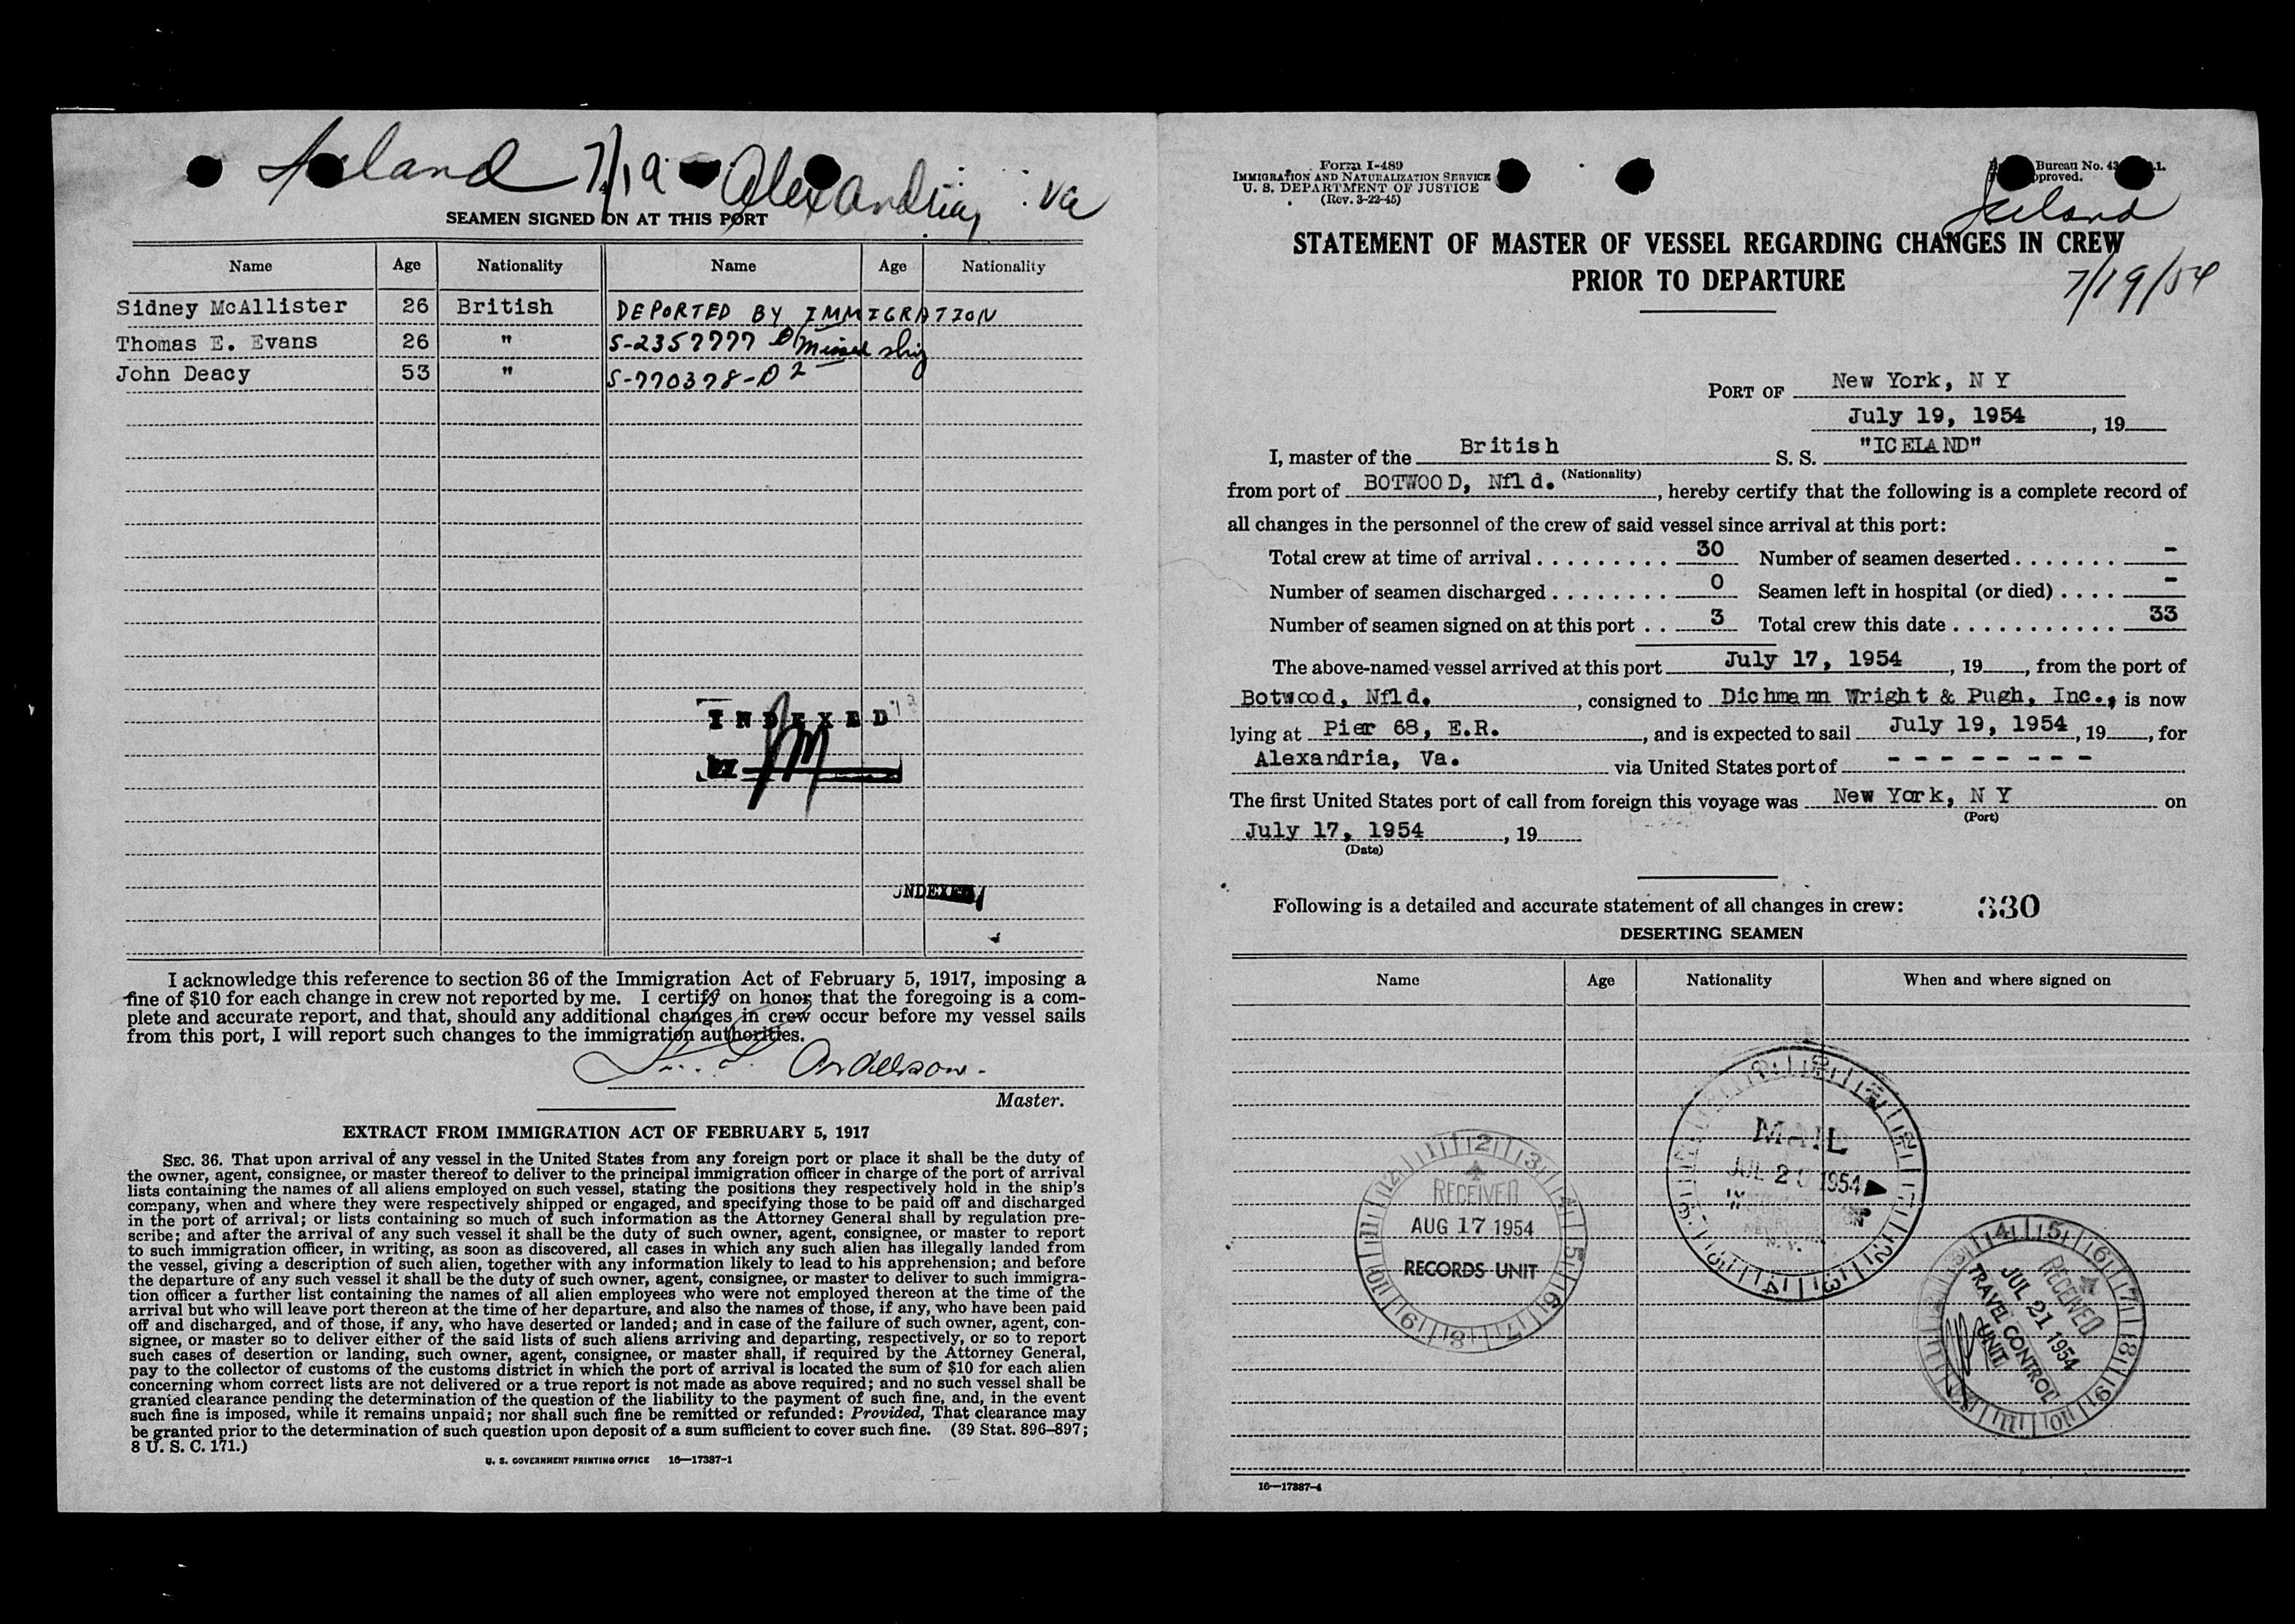 Iceland 7/19 - Alexandria, Va
SEAMEN SIGNED ON AT THIS PORT
Name Age Nationality Name Age Nationality
Sidney McAllister 26 British DEPORTED BY IMMIGRATION
Thomas E. Evans 26 " S-2357777 Missed ship
John Deacy 53 " S-770378-D2
INDEXED
BY
INDEXED
I acknowledge this reference to section 36 of the Immigration Act of February 5, 1917, imposing a
fine of $10 for each change in crew not reported by me. I certify on honor that the foregoing is a com-
plete and accurate report, and that, should any additional changes in crew occur before my vessel sails
from this port, I will report such changes to the immigration authorities.
Anderson.
Master.
EXTRACT FROM IMMIGRATION ACT OF FEBRUARY 5, 1917
SEC. 36. That upon arrival of any vessel in the United States from any foreign port or place it shall be the duty of
the owner, agent, consignee, or master thereof to deliver to the principal immigration officer in charge of the port of arrival
lists containing the names of all aliens employed on such vessel, stating the positions they respectively hold in the ship's
company, when and where they were respectively shipped or engaged, and specifying those to be paid off and discharged
in the port of arrival; or lists containing so much of such information as the Attorney General shall by regulation pre-
scribe; and after the arrival of any such vessel it shall be the duty of such owner, agent, consignee, or master to report
to such immigration officer, in writing, as soon as discovered, all cases in which any such alien has illegally landed from
the vessel, giving a description of such alien, together with any information likely to lead to his apprehension; and before
the departure of any such vessel it shall be the duty of such owner, agent, consignee, or master to deliver to such immigra-
tion officer a further list containing the names of all alien employees who were not employed thereon at the time of the
arrival but who will leave port thereon at the time of her departure, and also the names of those, if any, who have been paid
off and discharged, and of those, if any, who have deserted or landed; and in case of the failure of such owner, agent, con-
signee, or master so to deliver either of the said lists of such aliens arriving and departing, respectively, or so to report
such cases of desertion or landing, such owner, agent, consignee, or master shall, if required by the Attorney General,
pay to the collector of customs of the customs district in which the port of arrival is located the sum of $10 for each alien
concerning whom correct lists are not delivered or a true report is not made as above required; and no such vessel shall be
granted clearance pending the determination of the question of the liability to the payment of such fine, and, in the event
such fine is imposed, while it remains unpaid; nor shall such fine be remitted or refunded: Provided, That clearance may
be granted prior to the determination of such question upon deposit of a sum sufficient to cover such fine. (39 Stat. 896–897;
8 U. S. C. 171.)
U. S. GOVERNMENT PRINTING OFFICE 16—17387-1
Form I-489
IMMIGRATION AND NATURALIZATION SERVICE
U. S. DEPARTMENT OF JUSTICE
(Rev. 3-22-45)
Bureau No. 43
Iceland
STATEMENT OF MASTER OF VESSEL REGARDING CHANGES IN CREW
PRIOR TO DEPARTURE
7/19/54
PORT OF New York, N Y
July 19, 1954, 19
I, master of the British S. S. "ICELAND"
(Nationality)
from port of BOTWOOD, Nfld., hereby certify that the following is a complete record of
all changes in the personnel of the crew of said vessel since arrival at this port:
Total crew at time of arrival 30 Number of seamen deserted -
Number of seamen discharged 0 Seamen left in hospital (or died) -
Number of seamen signed on at this port 3 Total crew this date 33
The above-named vessel arrived at this port July 17, 1954, 19, from the port of
Botwood, Nfld., consigned to Dichmann Wright & Pugh, Inc., is now
lying at Pier 68, E.R., and is expected to sail July 19, 1954, 19, for
Alexandria, Va. via United States port of - - - - - - - -
The first United States port of call from foreign this voyage was New York, N Y on
(Port)
July 17, 1954, 19
(Date)
Following is a detailed and accurate statement of all changes in crew: 330
DESERTING SEAMEN
Name Age Nationality When and where signed on
MAIL
JUL 20 1954
RECEIVED
AUG 17 1954
RECORDS UNIT
RECEIVED
JUL 21 1954
TRAVEL CONTROL
UNIT
16—17387-4